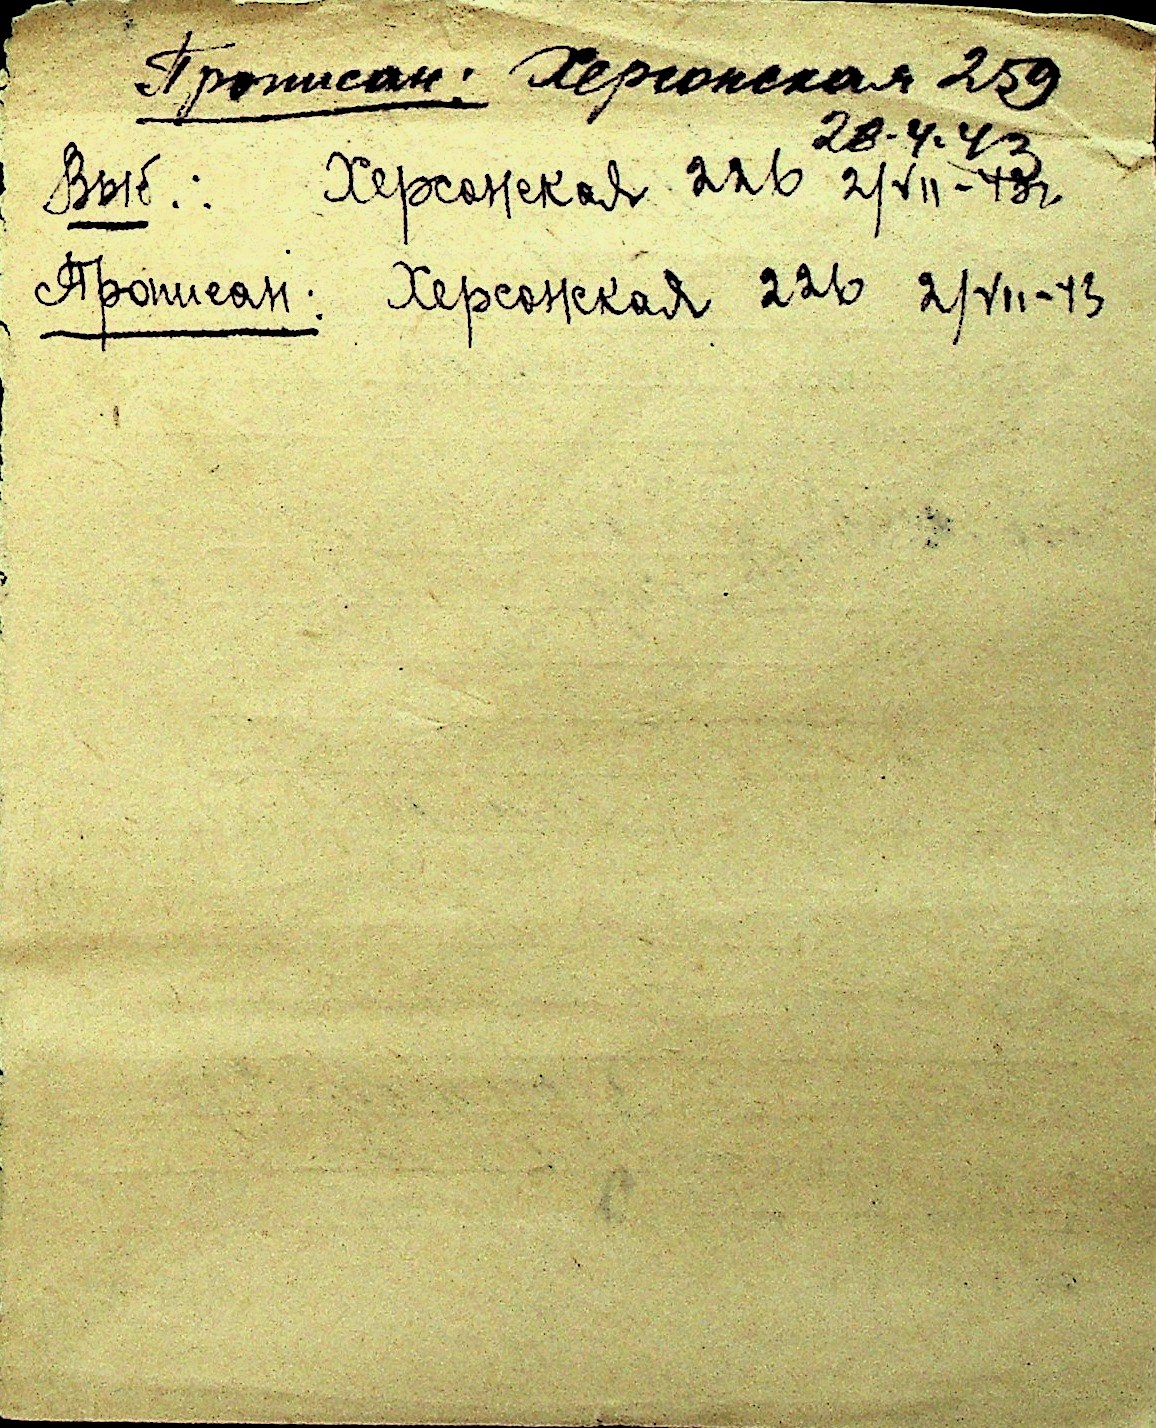 Прописан: Херсонская 259
28-4-43
Выб.: Херсонская 226 2/VII-43г
Прописан: Херсонская 226 2/VII-43